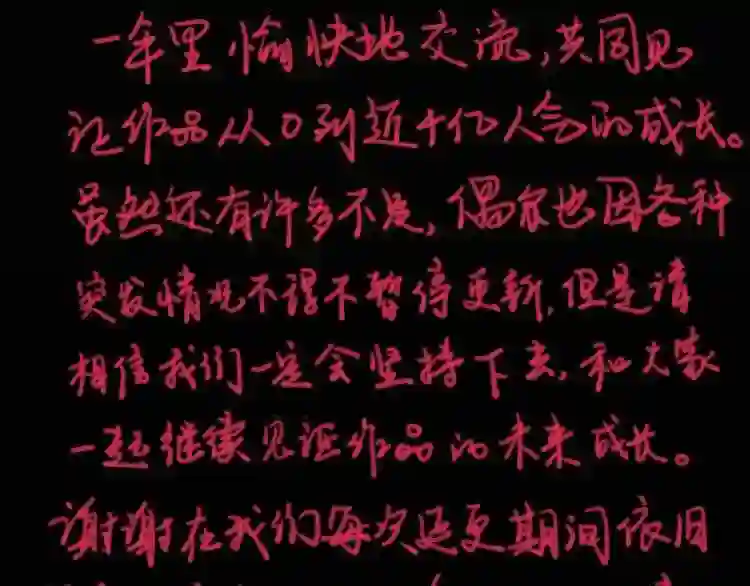 一年里愉快地交流,共同见
证作品从0到近十亿人气的成长。
虽然还有许多不足,偶尔也因各种
突发情况不得不暂停更新,但是请
相信我们一定会坚持下去,和大家
一起继续见证作品的未来成长。
谢谢在我们每次延更期间依旧